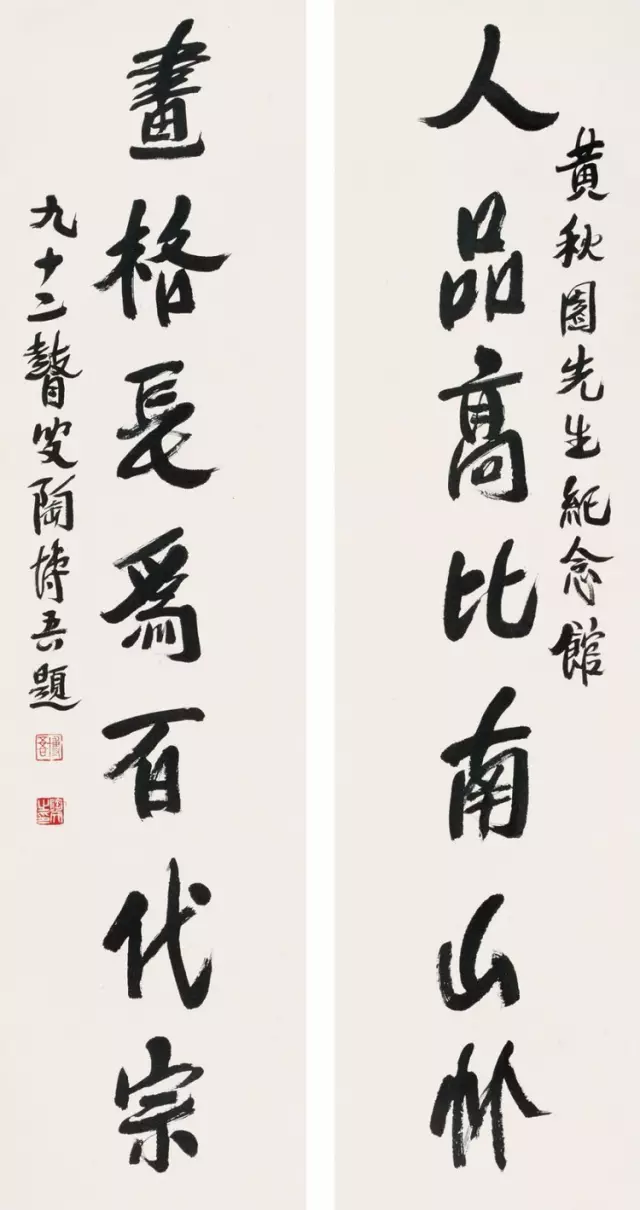 黃秋園先生紀念館
人品高比南山竹
畫格長爲百代宗
九十二瞽叟陶博吾題
博吾